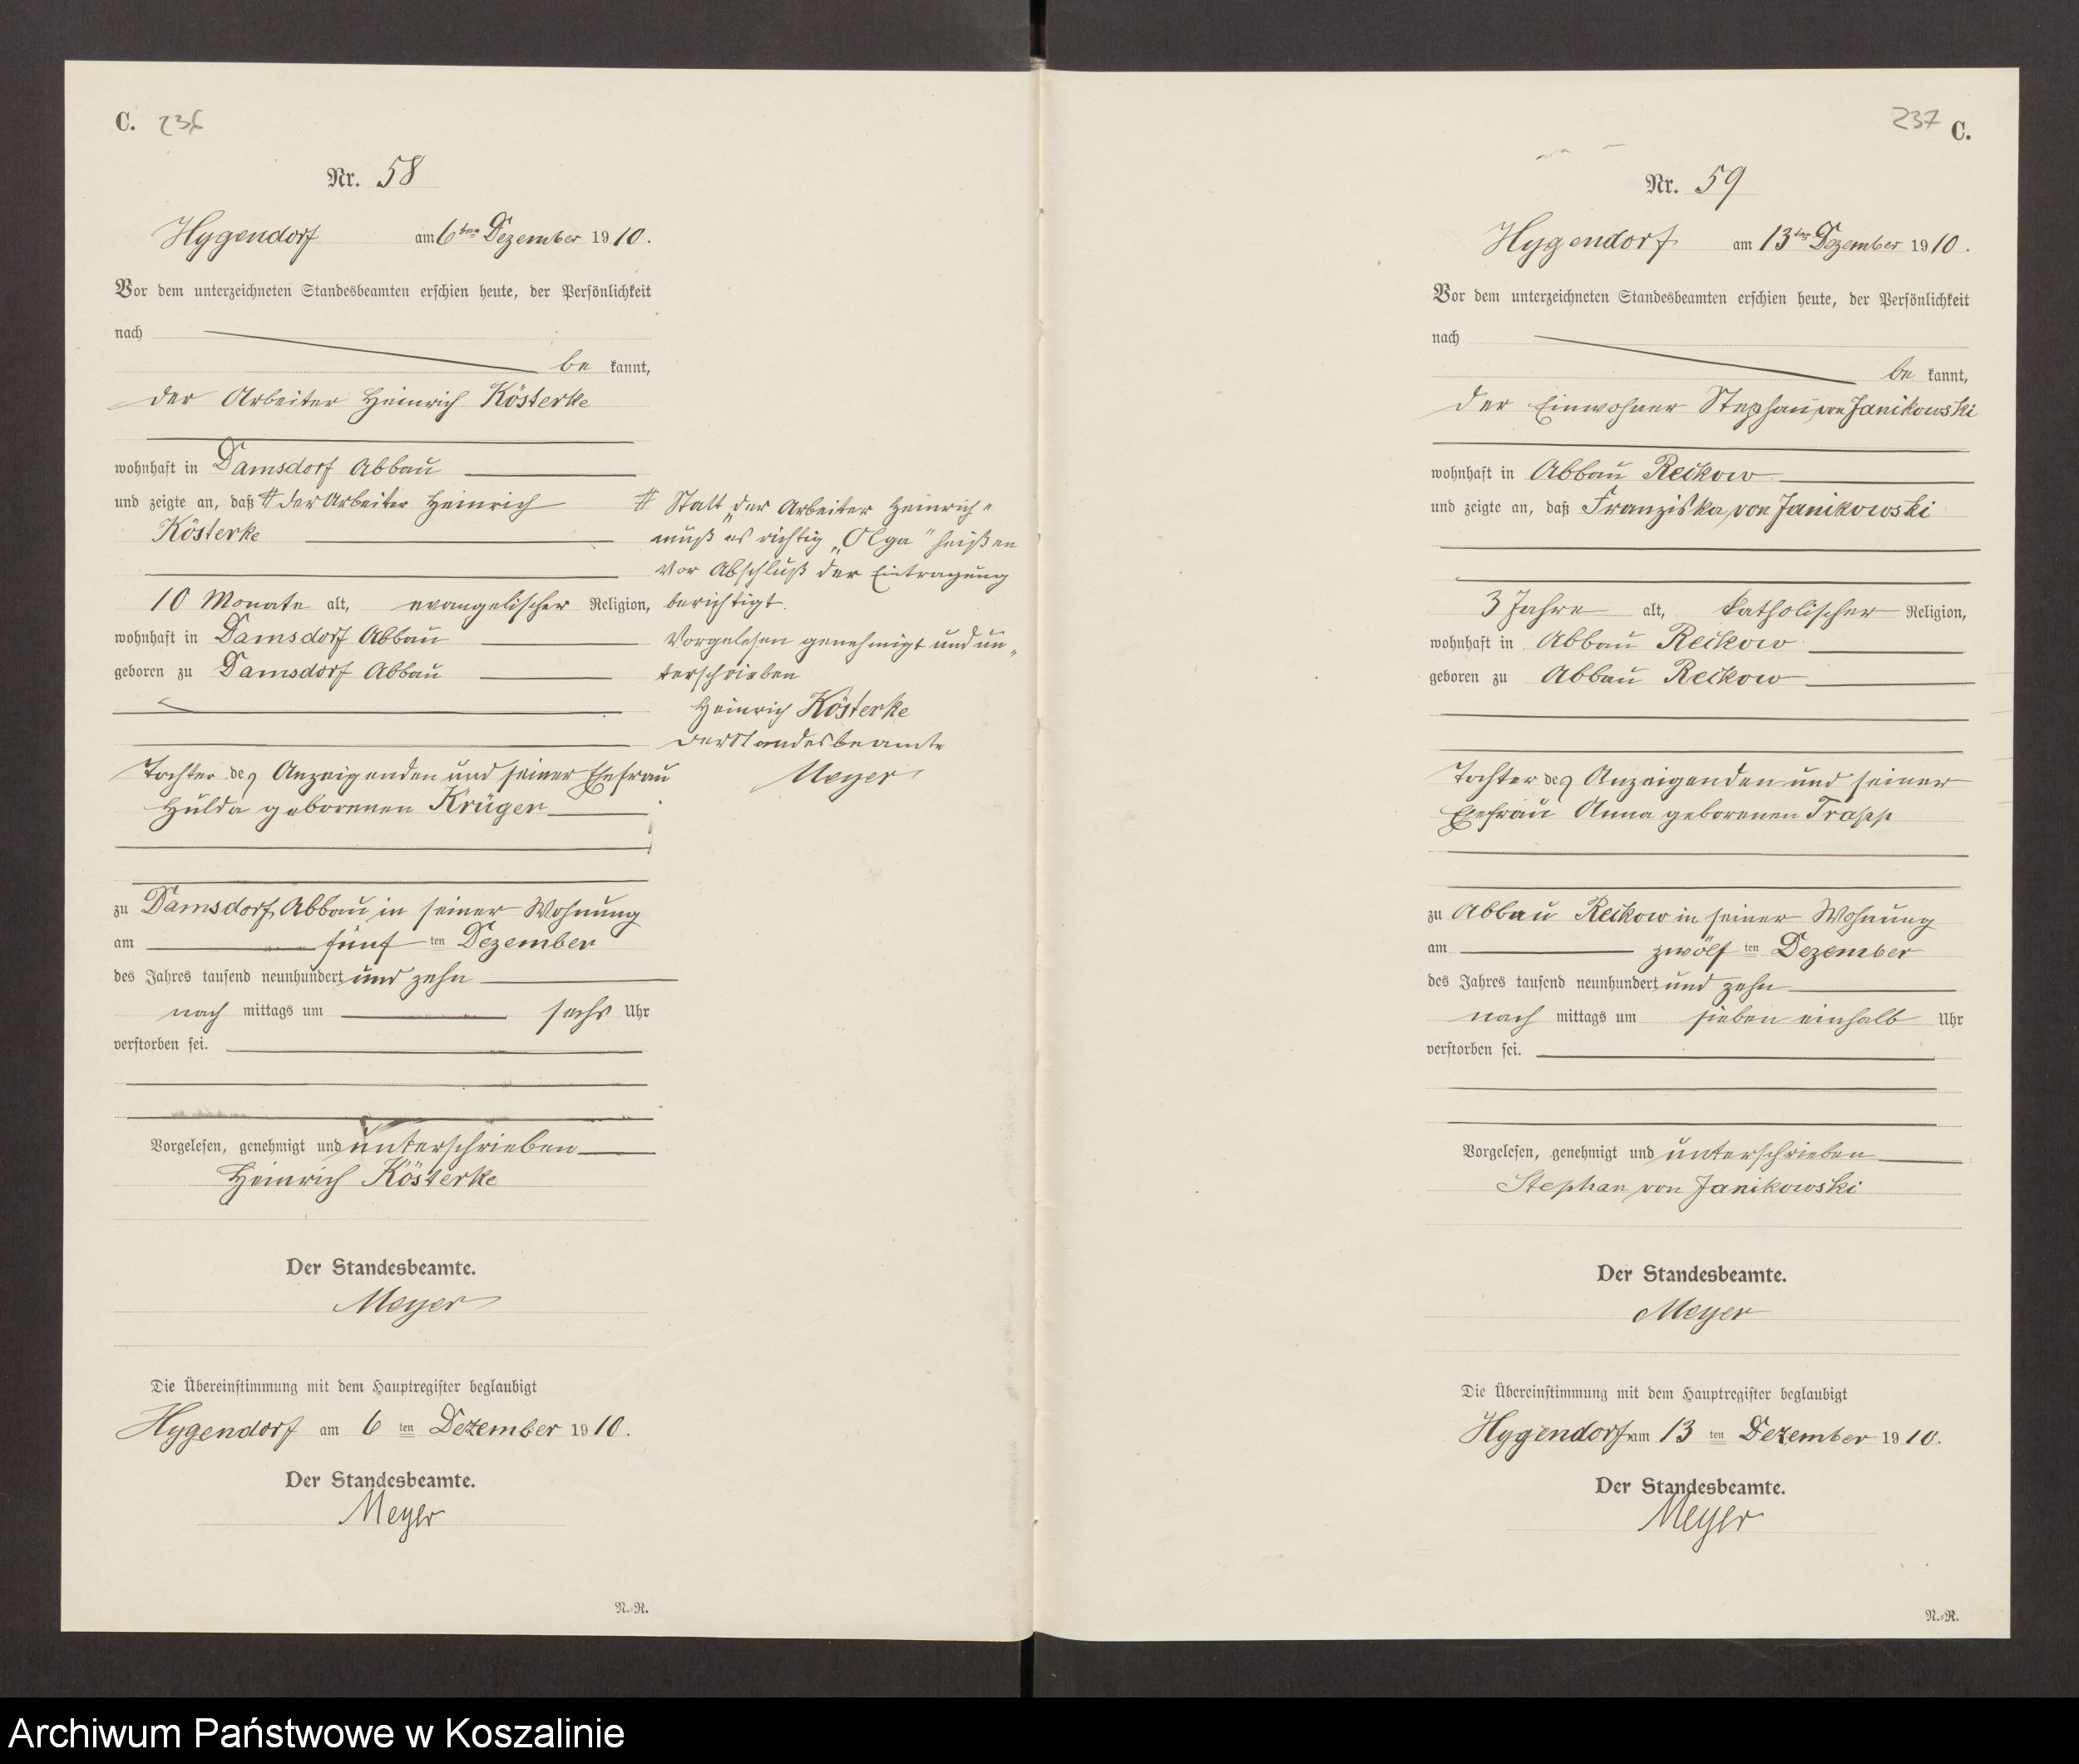 C. 236
Nr. 58
Hygendorf am 6ten Dezember 1910.
Vor dem unterzeichneten Standesbeamten erschien heute, der Persönlichkeit
nach
be kannt,
der Arbeiter Heinrich Kösterke
wohnhaft in Damsdorf Abbau
und zeigte an, daß # der Arbeiter Heinrich
Kösterke
10 Monate alt, evangelischer Religion,
wohnhaft in Damsdorf Abbau
geboren zu Damsdorf Abbau
Tochter des Anzeigenden und seiner Ehefrau
Hulda geborenen Krüger
zu Damsdorf Abbau in seiner Wohnung
am fünf ten Dezember
des Jahres tausend neunhundert und zehn
nach mittags um sechs Uhr
verstorben sei.
Vorgelesen, genehmigt und unterschrieben
Heinrich Kösterke
Der Standesbeamte.
Meyer
Die Übereinstimmung mit dem Hauptregister beglaubigt
Hygendorf am 6 ten Dezember 1910.
Der Standesbeamte.
Meyer
N.-R.
# Statt „der Arbeiter Heinrich"
muß es richtig „Olga" heißen
vor Abschluß der Eintragung
berichtigt.
Vorgelesen genehmigt und un„
terschrieben
Heinrich Kösterke
Der Standesbeamte
Meyer
237 C.
Nr. 59
Hygendorf am 13ten Dezember 1910.
Vor dem unterzeichneten Standesbeamten erschien heute, der Persönlichkeit
nach
be kannt,
der Einwohner Stephan von Janikowski
wohnhaft in Abbau Reckow
und zeigte an, daß Franziska von Janikowski
3 Jahre alt, katholischer Religion,
wohnhaft in Abbau Reckow
geboren zu Abbau Reckow
Tochter des Anzeigenden und seiner
Ehefrau Anna geborenen Trapp
zu Abbau Reckow in seiner Wohnung
am zwölf ten Dezember
des Jahres tausend neunhundert und zehn
nach mittags um sieben einhalb Uhr
verstorben sei.
Vorgelesen, genehmigt und unterschrieben
Stephan von Janikowski
Der Standesbeamte.
Meyer
Die Übereinstimmung mit dem Hauptregister beglaubigt
Hygendorf am 13 ten Dezember 1910.
Der Standesbeamte.
Meyer
N.-R.
Archiwum Państwowe w Koszalinie